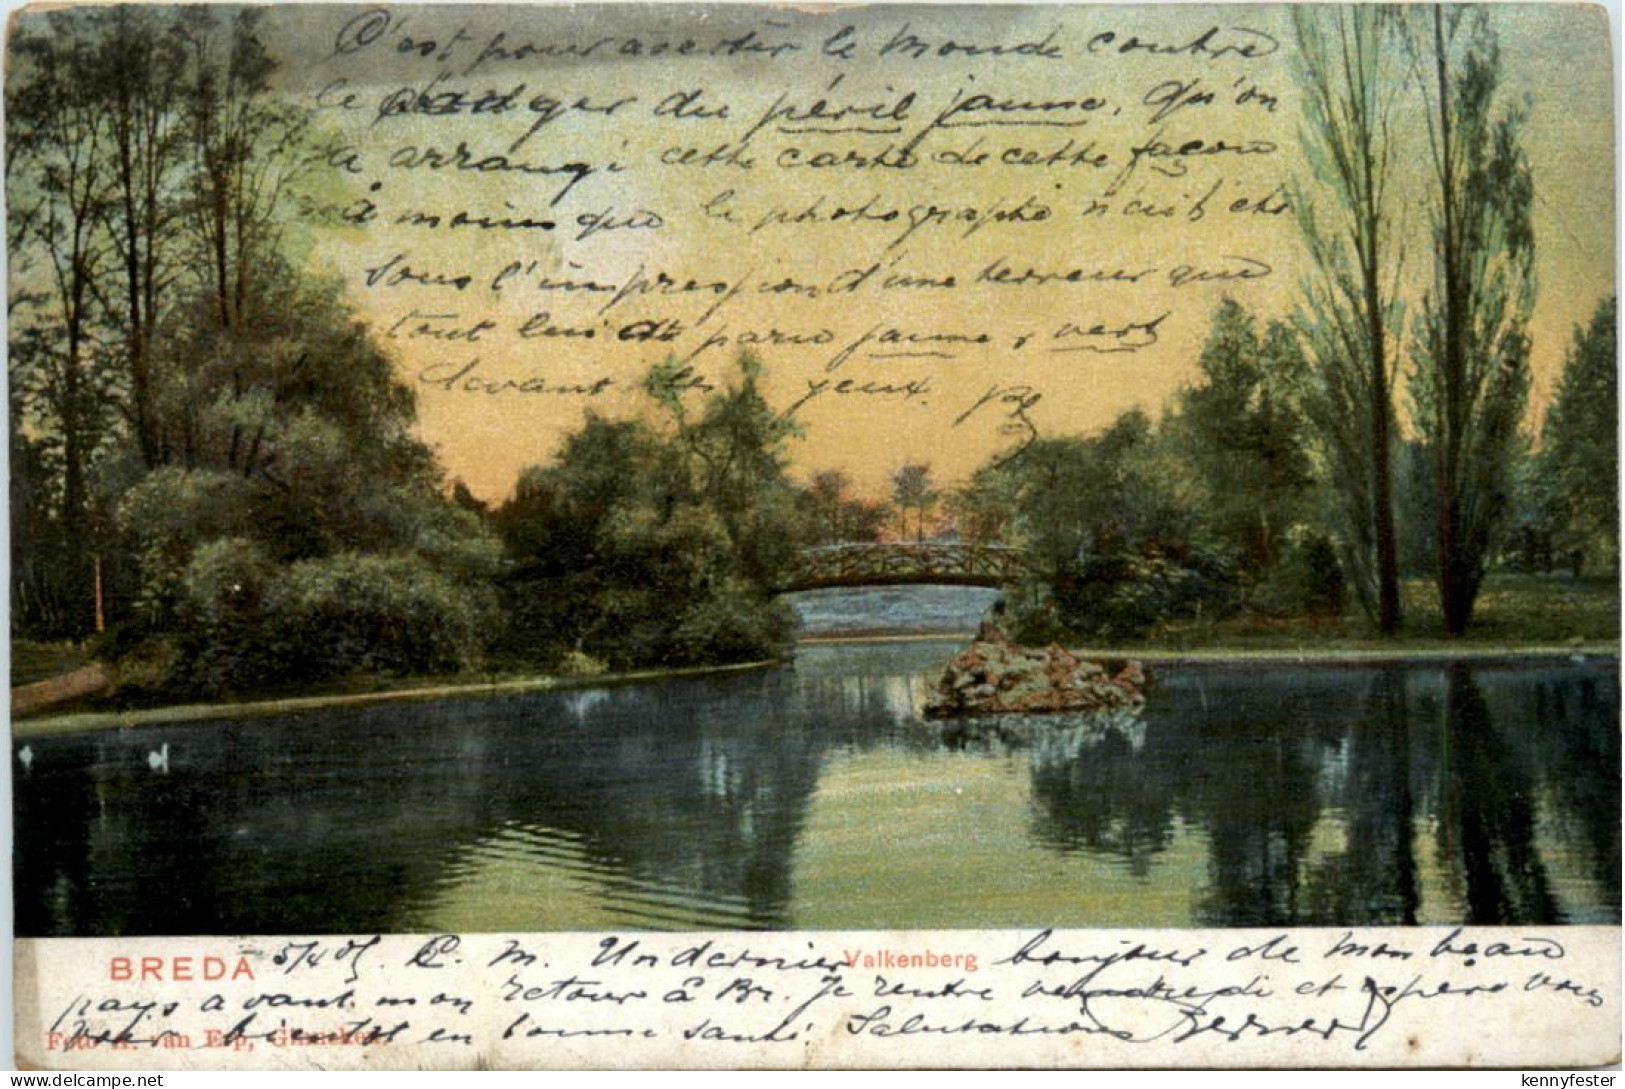 C'est pour avertir le monde contre
le danger du péril jaune, qu'on
a arrangé cette carte de cette façon
à moins que le photographe n'eût été
sous l'impression d'une terreur que
tout lui ait paru jaune & vert
devant les yeux.
BREDA 5/4 05. C. M. Undernier Valkenberg bonjour de mon beau
pays avant mon retour à Br. Je rentre vendredi et espère vous
voir bientôt en bonne santé. Salutations
Foto H. van Erp, Ginneken.
kennyfester